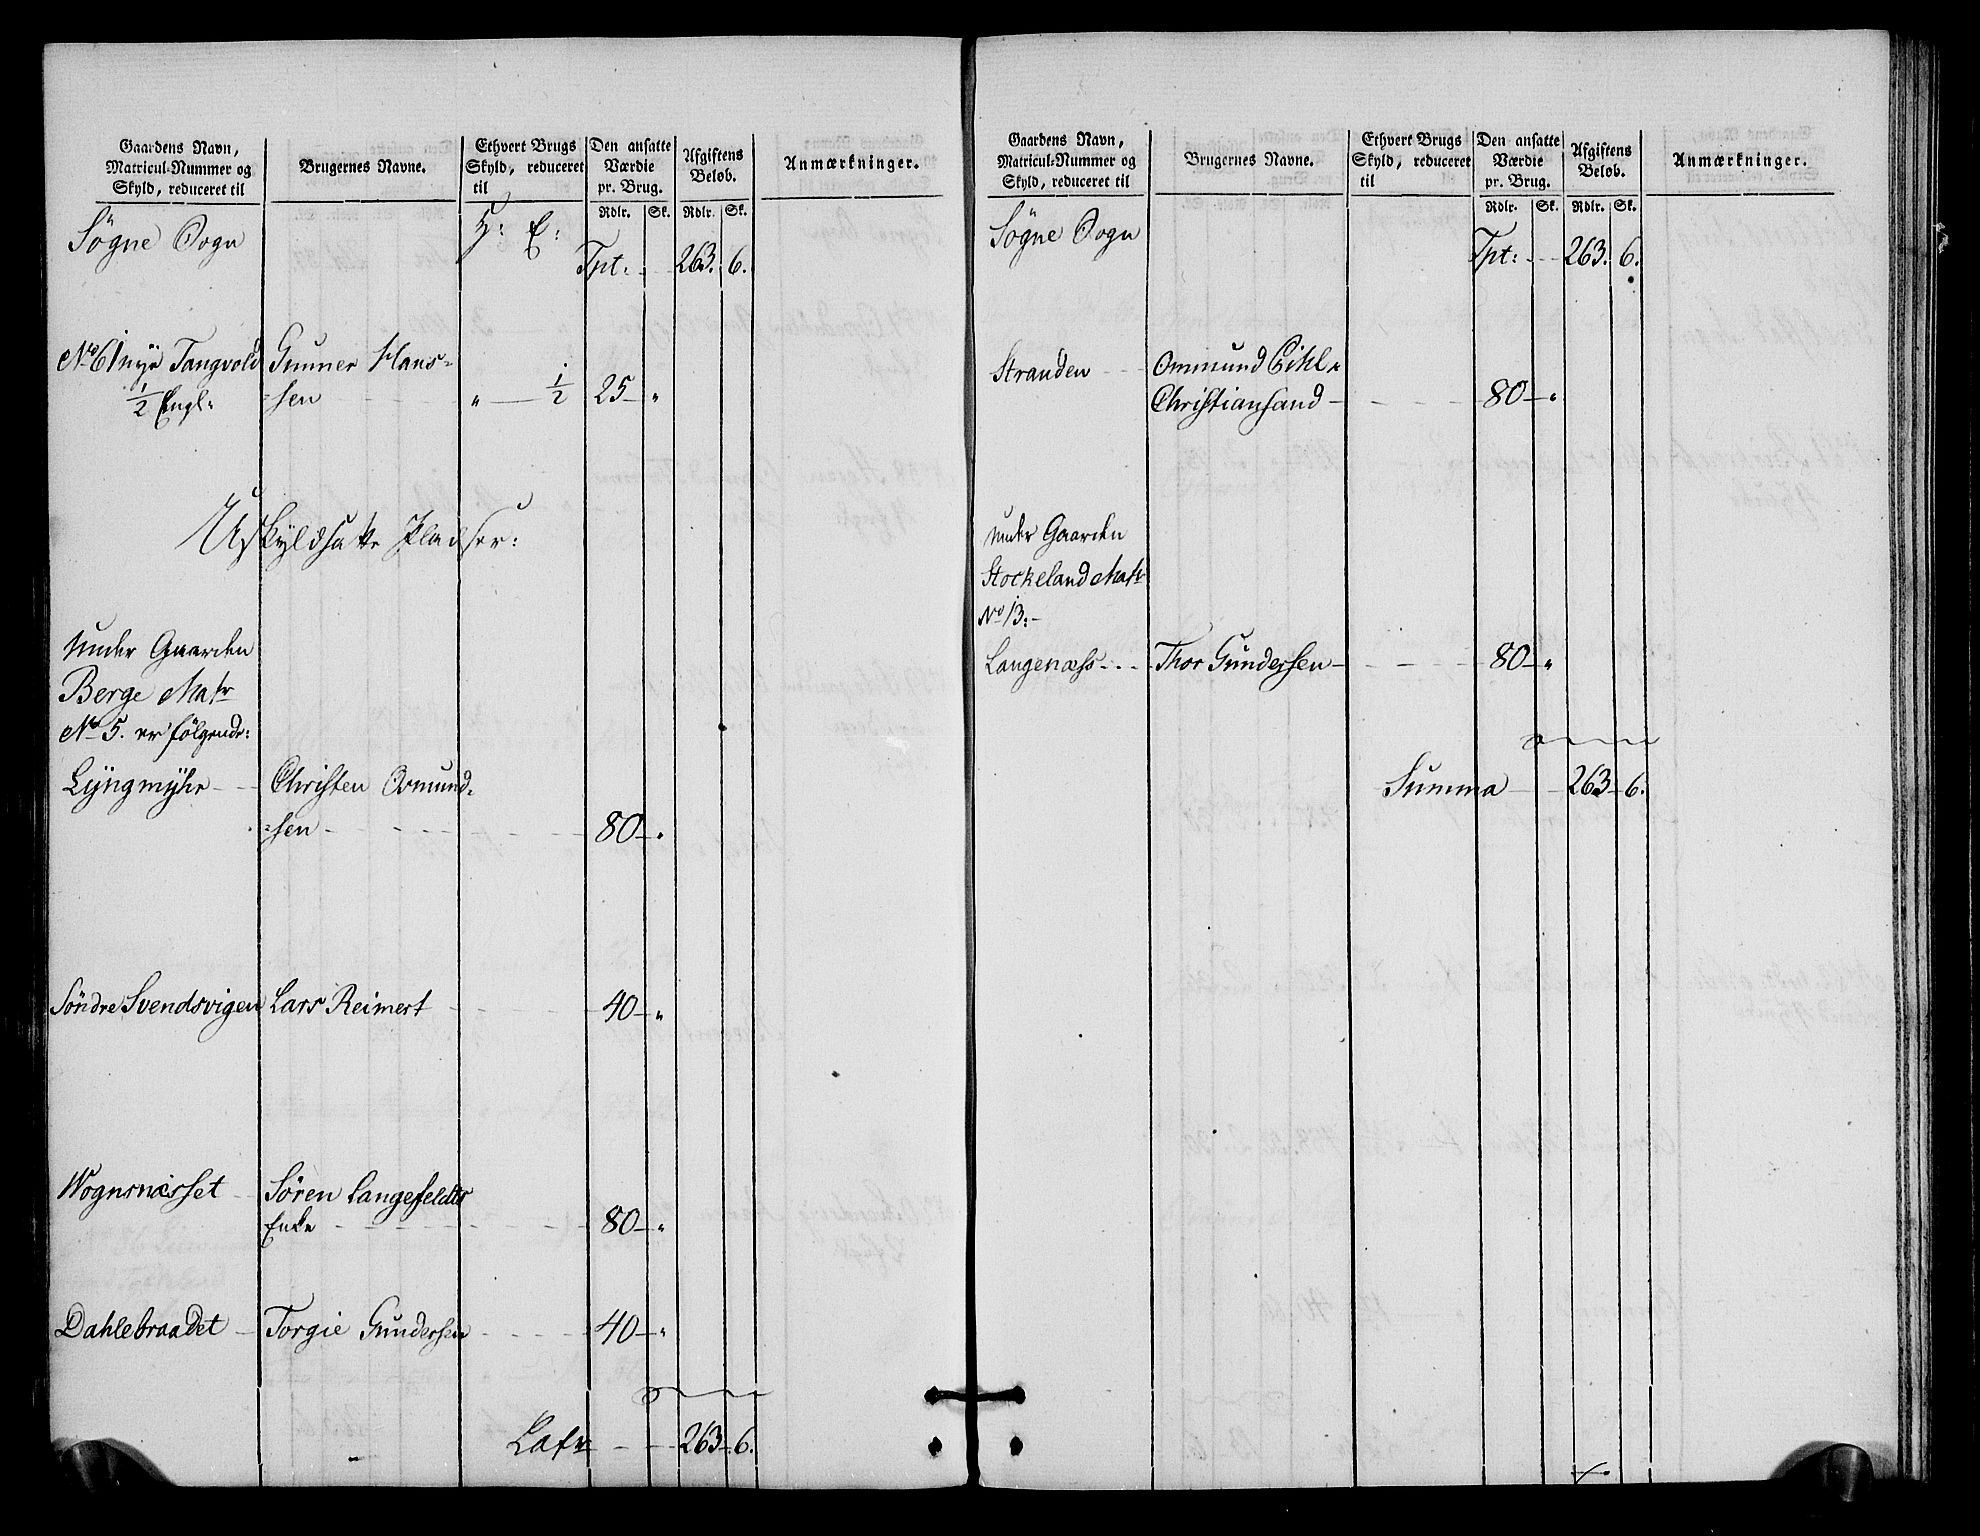 Gaardens Navn,
Matricul-Nummer og
Skyld, reduceret til
Brugernes Navne.
Ethvert Brugs
Skyld, reduceret
til
Den ansatte
Værdie
pr. Brug.
Afgiftens
Beløb.
Anmærkninger.
Rdlr. Sk. Rdlr. Sk.
Søgne Sogn H: E:
Tpt: - - 263. 6.
No 61 nye Tangvold Gunner Hans=
1/2 Engl: =sen - - - " — 1/2 25 — "
Uskyldsatte Pladser:
under Gaarden
Berge Matr
No 5. er følgende:
Lyngmyhr - - Christen Osmund=
=sen - - - - 80 — "
Søndre Svendsvigen Lars Reimert - - - 40 — "
Wognsnæsset - Søren Langefeldts
Enke - - - - 80 — "
Dahlebraadet - Torgie Gundersen - - - 40 — "
Latr - - 263 - 6.
Gaardens Navn,
Matricul-Nummer og
Skyld, reduceret til
Brugernes Navne.
Ethvert Brugs
Skyld, reduceret
til
Den ansatte
Værdie
pr. Brug.
Afgiftens
Beløb.
Anmærkninger.
Rdlr. Sk. Rdlr. Sk.
Søgne Sogn
Tpt: - - 263. 6.
Stranden - - Ommund
Christiansand - - - - 80 — "
under Gaarden
Stockeland Matr
No 13: -
Langenæss - - - Thor Gundersen - - - - 80 — "
Summa - - 263 - 6.